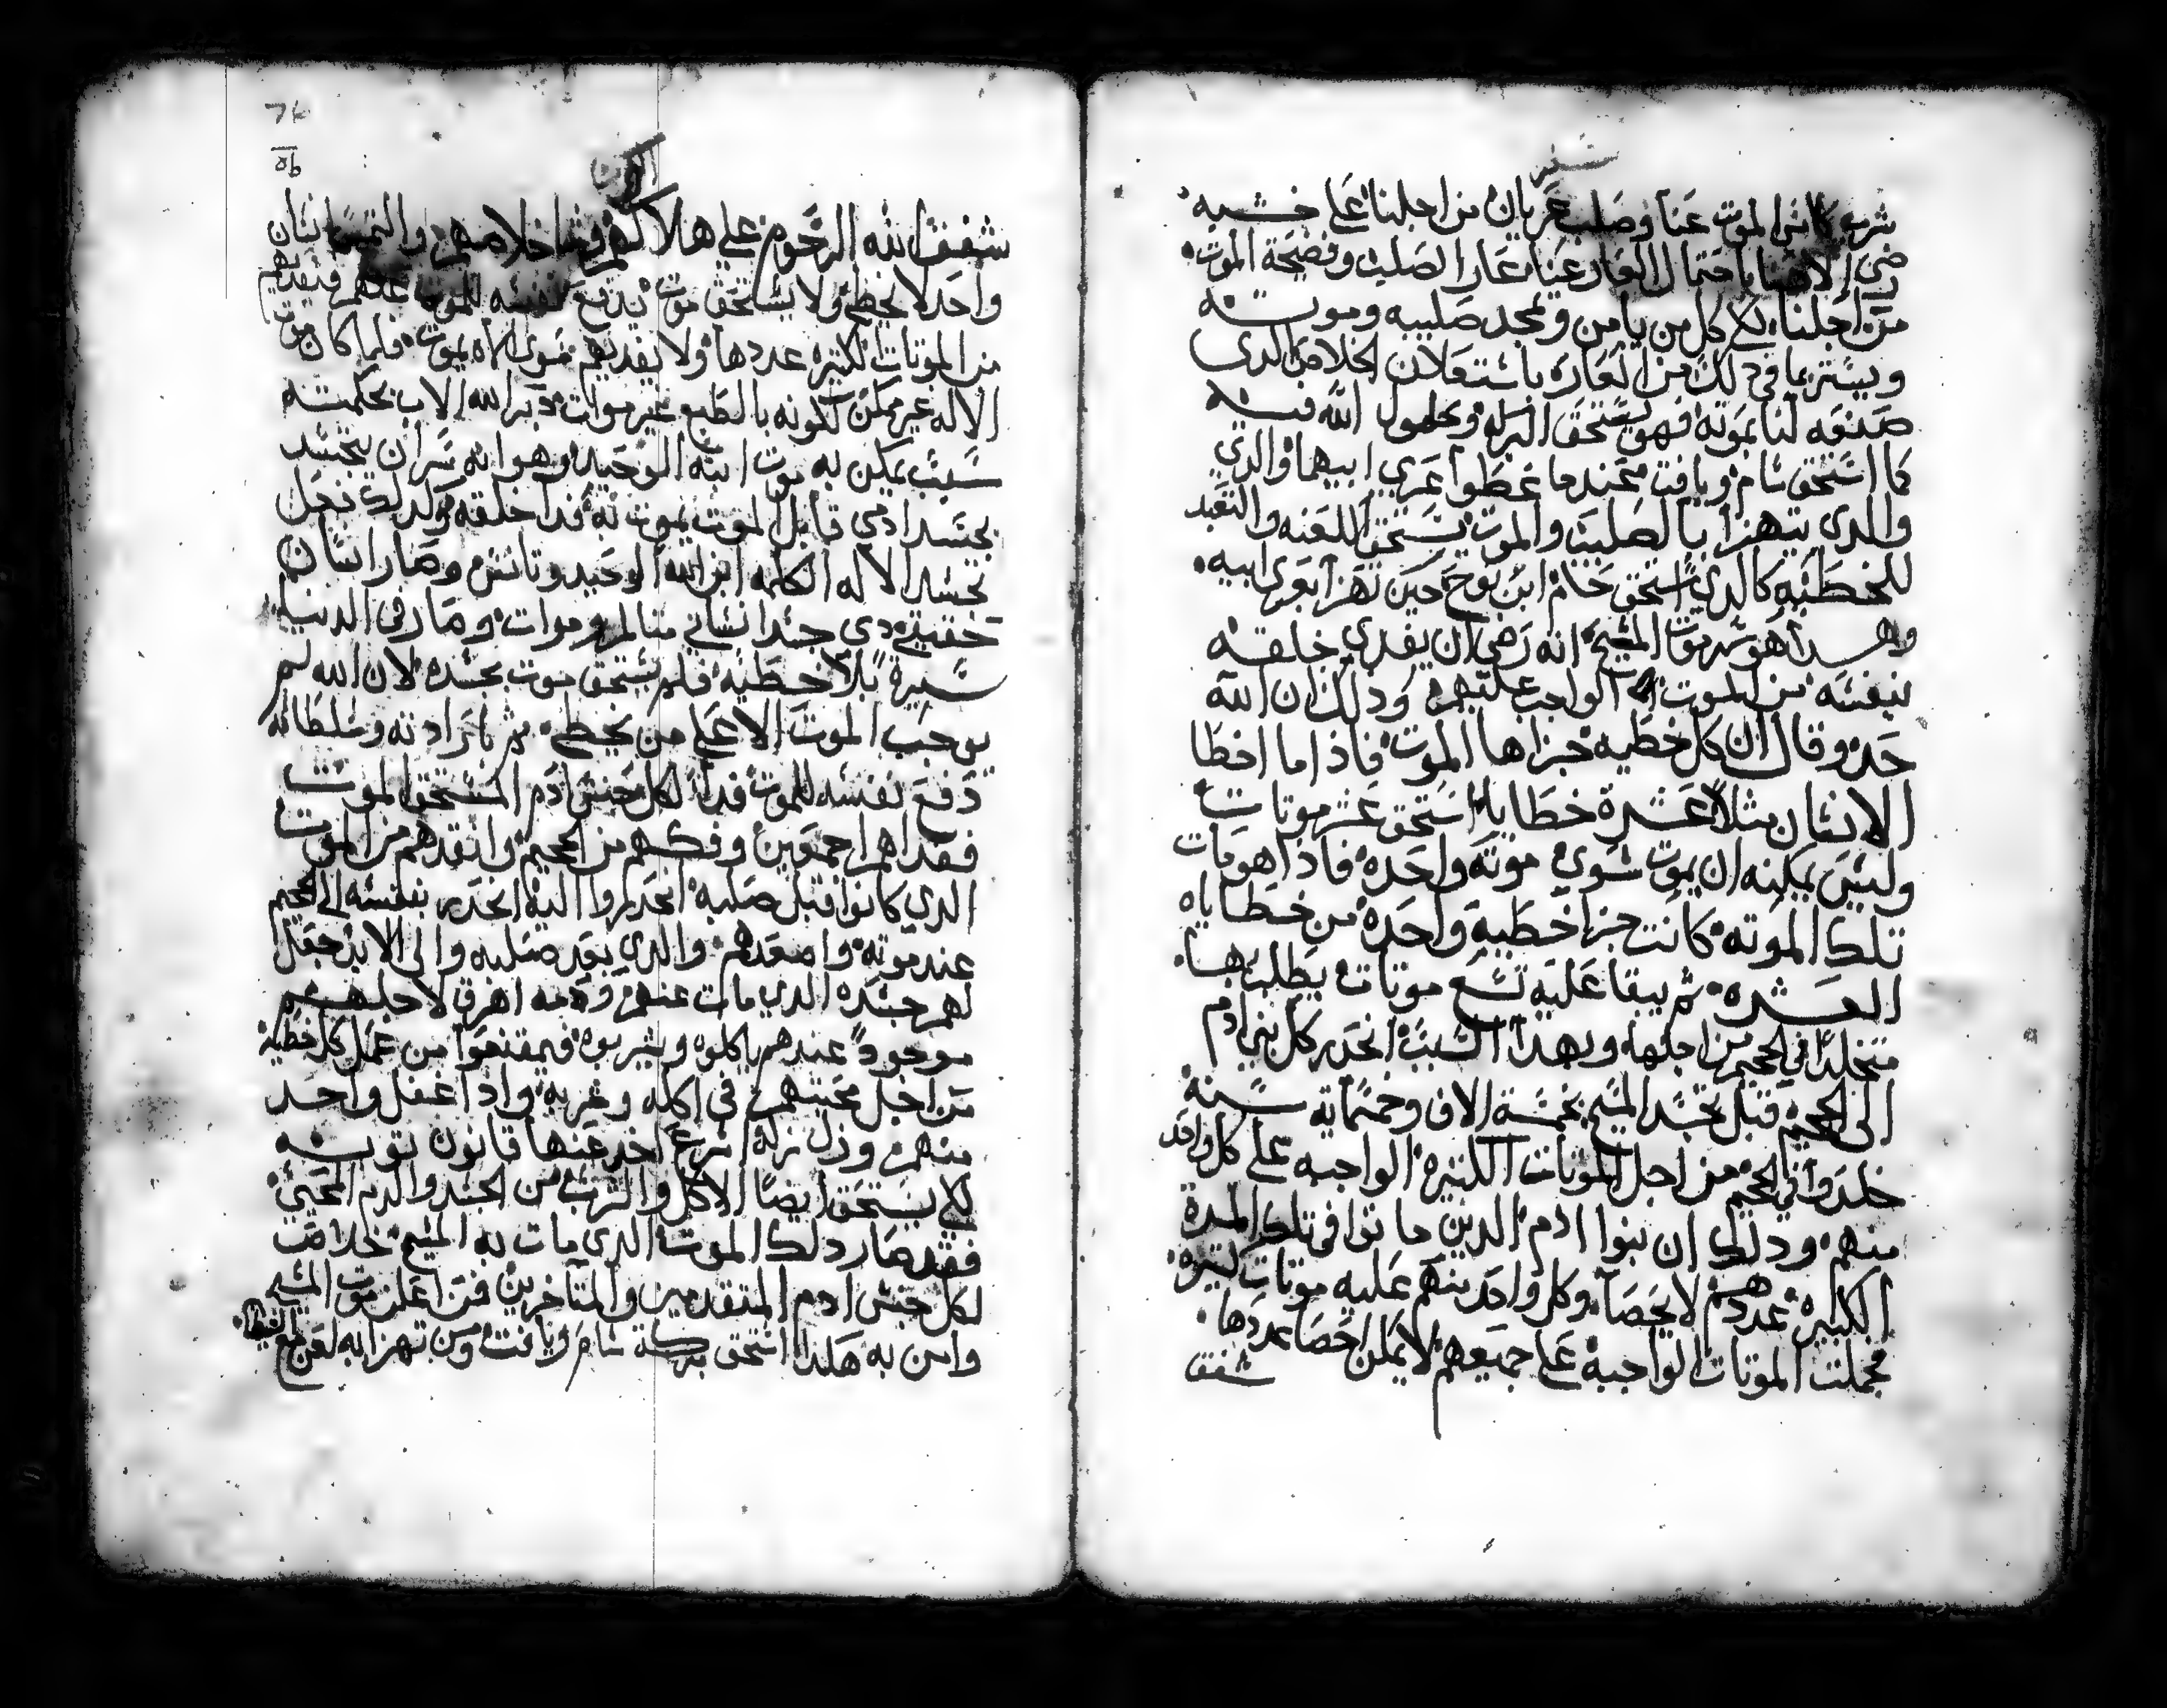 شربه كاس الموت عنا وصلب عريان من اجلنا على خشبه
رضي الاهنا باحتمال العار عنا عار الصليب وفضيحة الموت
من اجلنا لكي كل من يامن ويمجد صليبه وموته
ويستر ما في ذلك من العاره باستعلان الخلاص الدي
صنعه لنا بموته فهو يستحق البركه وحلول الله فيه
كما استحق سام ويافت عندما غطوا عري ابيهما والدي
والدي يتهزا بالصليب والموت يستحق اللعنه والتعبد
للخطيه كالدي استحق حام ابن نوح حين تهزا بعري ابيه
وهدا هو سر موت المسيح انه رضي ان يفدي خلقه
بنفسه من الموت الواجب عليهم ودلك ان الله
حد وقال ان كل خطيه جزاها الموت فاذا ما اخطا
الانسان مثلا عشرة خطايا استحق عشر موتات
وليس يمكنه ان يموت سوي موته واحده فاذا هو مات
تلك الموته كانت جزا خطيه واحده من خطاياه
العشره ثم يبقا عليه تسع موتات يطلب بها
متخلدا في الجحيم من اجلها وبهدا السبب انحدر كل بني ادم
الى الجحيم قبل تجسد المسيح بخمسة الاف وخمسمايه سنه
خلدوا في الجحيم من اجل الموتات الكتيره الواجبه على كل واحد
منهم ودلك ان بنوا ادم الدين ماتوا في تلك المدة
الكبيره عددهم لا يحصا وكل واحد منهم عليه موتات كتيره
فجملت الموتات الواجبه على جميعهم لا يمكن احصا عددها
شفق
شفق الله الرحوم على هلاكهم وشا خلاصهم والتمس انسان
واحد لا يخطي ولا يستحق موت يدفع نفسه للموت عنهم فيفديهم
من الموتات الكتيره عددها ولا يفديهم سوي الاه يموت فلما كان موت
الاله غير ممكن لكونه بالطبع غير موات دبر الله الاب بحكمته
سبب يمكن به موت ابنه الوحيد وهو انه سر ان يتجسد
بجسد ادمي قابل الموت يموت به فدا خلقه وكدلك فعل
تجسد الاله الكلمه ابن الله الوحيد وتانس وصار انسان
حقيقي دي جسد انساني متالم وموات وصار في الدنيا
سيرة بلا خطيه فلم يستحق موت بجسده لان الله لم
يوجب الموت الا على من يخطي ثم بارادته وسلطانه
دفع نفسه للموت فدا لكل جنس ادم المستحق الموت
ففداهم اجمعين وفكهم من الجحيم وانقدهم من الموت
الدي كانوا قبل صلبه انحدروا اليه انحدر بنفسه الى الجحيم
عند موته واصعدهم والدي بعد صلبه والى الابد جعل
لهم جسده الدي مات عنهم ودمه اهرق لاجلهم
موجودا عندهم ياكلوه ويشربوه فيمتنعوا من عمل كل خطيه
من اجل محبتهم في اكله وشربه وادا غفل واحد
منهم وزل زله اسرع اخد عنها قانون توبه
لكي يستحق ايضا الاكل والشرب من الجسد والدم المحيي
فقد صار دلك الموت الدي مات به المسيح خلاص
لكل جنس ادم المتقدمين والمتاخرين فمن اعلن موت المسيح
وامن به هكدا استحق بركة سام ويافت ومن تهزا به لعن مع